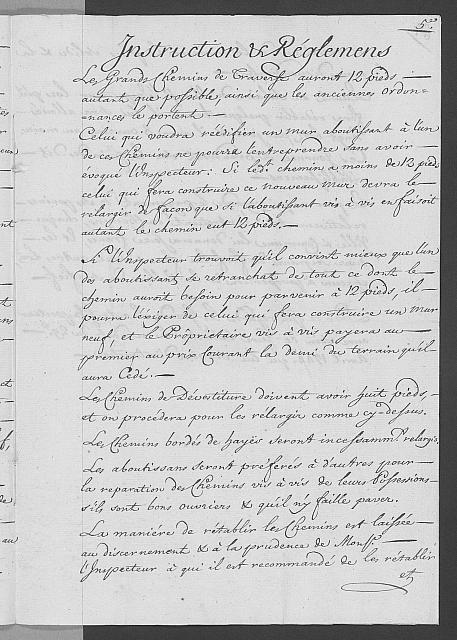 5.
Instruction & Réglemens
Les Grands Chemins de Traverse auront 12 pieds
autant que possible, ainsi que les anciennes ordon-
-nances le portent.
Celui qui voudra réédifier un mur aboutissant à l'un
de ces Chemins ne pourra l'entreprendre sans avoir
évoqué l'Inspecteur: Si led.t chemin a moins de 13 pieds
celui qui fera construire ce nouveau mur devra le
rélargir de façon que si l'aboutissant vis à vis en faisoit
autant le chemin eut 12 pieds.
Si l'Inspecteur trouvoit qu'il convint mieux que l'un
des aboutissans se retranchat de tout ce dont le
chemin auroit besoin pour parvenir à 12 pieds, il
pourra l'exiger de celui qui fera construire un mur
neuf, et le Propriétaire vis à vis payera au
premier au prix Courant la demi du terrain qu'il
aura Cédé.
Les Chemins de Dévestiture doivent avoir huit pieds,
et on procédera pour les rélargir comme cy-dessus.
Les Chemins bordés de hayes seront incessamm.t rélargis
Les aboutissans seront préférés à d'autres pour
la reparation des Chemins vis à vis de leurs Possessions
s'ils sont bons ouvriers & qu'il n'y faille paver.
La maniére de rétablir les Chemins est laissée
au discernement & à la prudence de Mons.r
l'Inspecteur à qui il est recommandé de les rétablir
et